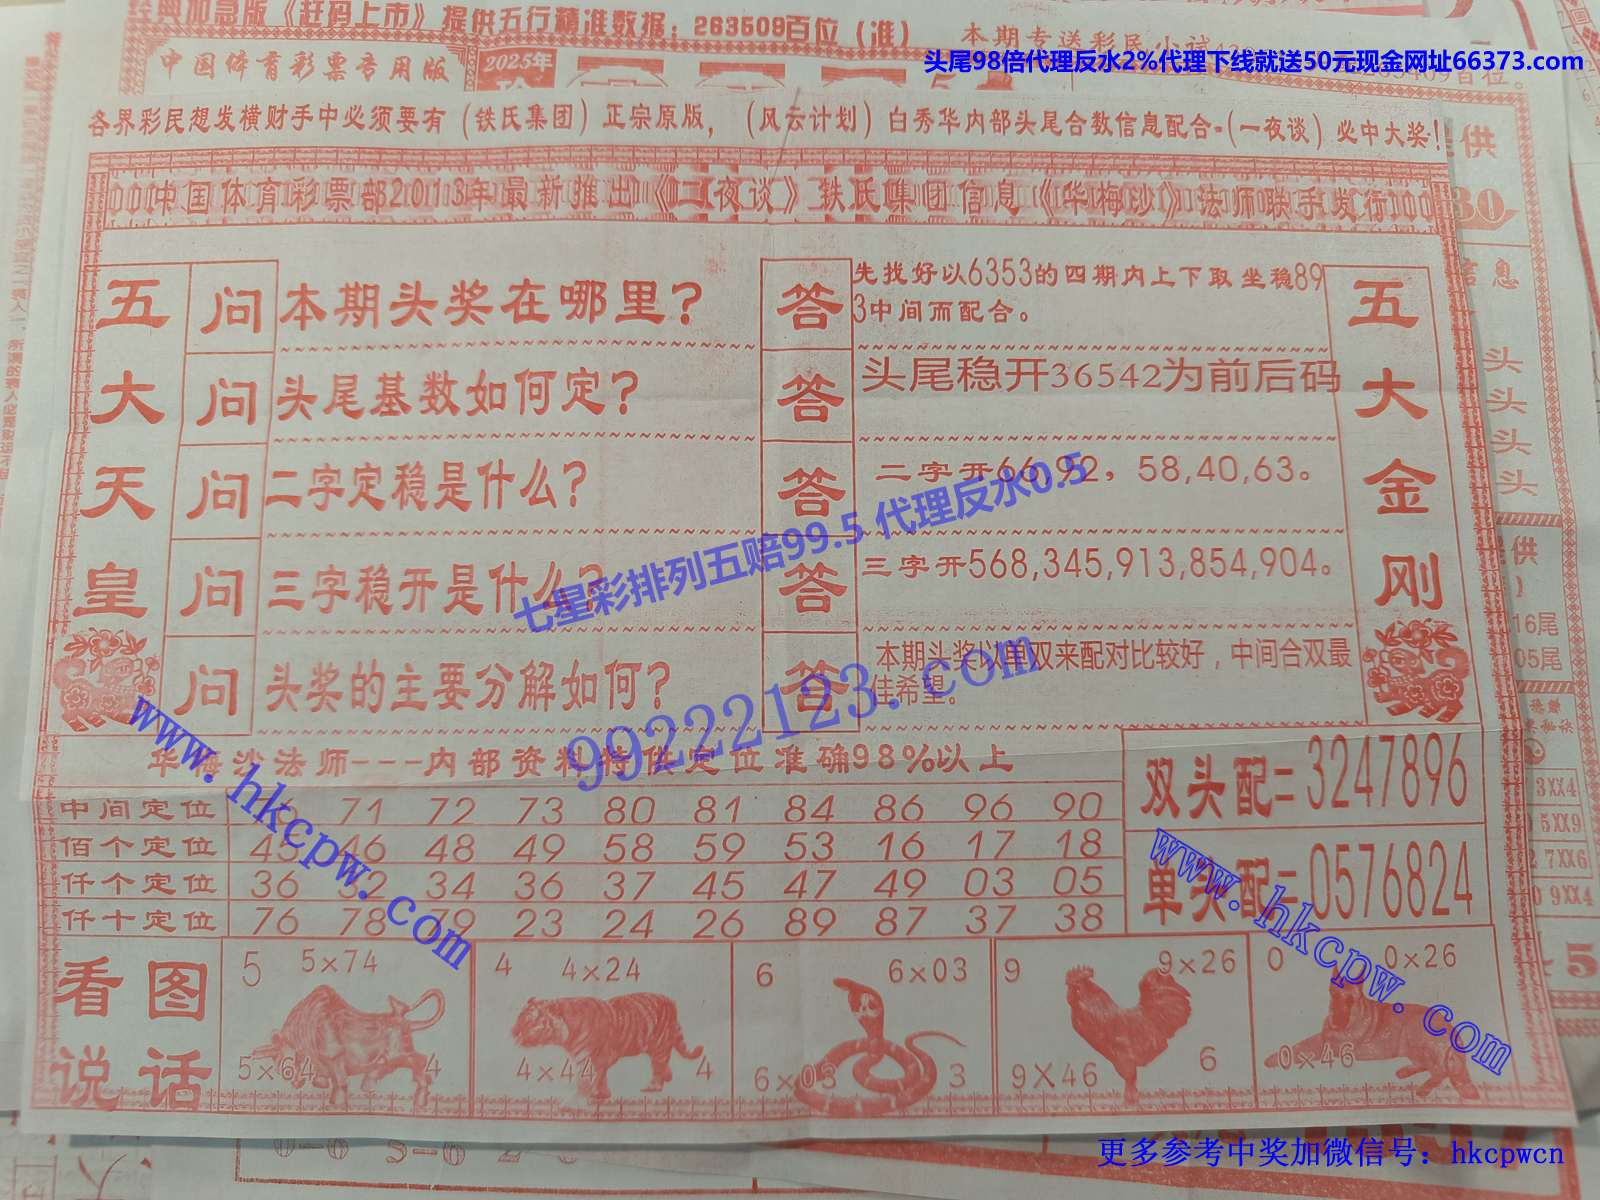 经典加急版《赶码上市》提供五行精准数据：263509百位（准）
本期专送彩民小试
头尾98倍代理反水2%代理下线就送50元现金网址66373.com
中国体育彩票专用版
2025年
各界彩民想发横财手中必须要有（铁氏集团）正宗原版，（风云计划）白秀华内部头尾合数信息配合-（一夜谈）必中大奖！
中国体育彩票部2013年最新推出《二夜谈》铁氏集团信息《华梅沙》法师联手发行
五大天皇
问 本期头奖在哪里？
答 先找好以6353的四期内上下取坐稳89
3中间而配合。
问 头尾基数如何定？
答 头尾稳开36542为前后码
问 二字定稳是什么？
答 二字开66,92，58,40,63。
问 三字稳开是什么？
答 三字开568,345,913,854,904。
问 头奖的主要分解如何？
答 本期头奖以单双来配对比较好，中间合双最
佳希望。
五大金刚
七星彩排列五赔99.5 代理反水0.5
99222123.com
华海沙法师---内部资料特供定位准确98%以上
中间定位 71 72 73 80 81 84 86 96 90
佰个定位 45 46 48 49 58 59 53 16 17 18
仟个定位 36 32 34 36 37 45 47 49 03 05
仟十定位 76 78 79 23 24 26 89 87 37 38
双头配=3247896
单头配=0576824
www.hkcpw.com
www.hkcpw.com
看图
说话
5 5×74
5×64 4
4 4×24
4×44 4
6 6×03
6×03 3
9 9×26
9×46 6
0 0×26
0×46
供
息
头
头
头
头
供
16尾
05尾
3XX4
5XX9
7XX6
9XX4
5
更多参考中奖加微信号：hkcpwcn